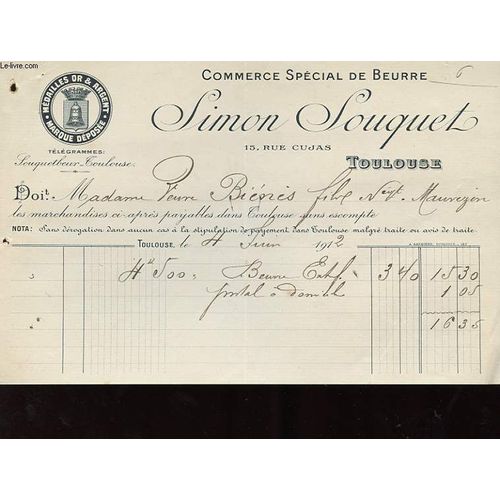 Le-livre.com
COMMERCE SPÉCIAL DE BEURRE
6
MÉDAILLES OR & ARGENT
MARQUE DÉPOSÉE
Simon Souquet
15, RUE CUJAS
TÉLÉGRAMMES:
Souquetbeur-Toulouse.
TOULOUSE
Doit Madame Veuve
les marchandises ci-après payables dans Toulouse sans escompte
NOTA: Sans dérogation dans aucun cas à la stipulation de payement dans Toulouse malgré traite ou avis de traite.
TOULOUSE, le 4 Juin 1912
4k 500 = Beurre Ext. 3 40 15 30
postal à domicile 1 05
16 35